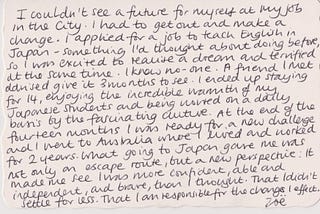 I couldn't see a future for myself at my job
in the City. I had to get out and make a
change. I applied for a job to teach English in
Japan - something I'd thought about doing before,
so I was excited to realize a dream and terrified
at the same time. I knew no-one. A friend I met
advised give it 3 months to see. I ended up staying
for 14, enjoying the incredible warmth of my
Japanese students and being wowed on a daily
basis by the fascinating culture. At the end of the
fourteen months I was ready for a new challenge
and I went to Australia where I lived and worked
for 2 years. What going to Japan gave me was
not only an escape route, but a new perspective: It
made me see I was more confident, able and
independent, and brave, than I thought. That I didn't
settle for less. That I am responsible for the change I effect.
Zoë